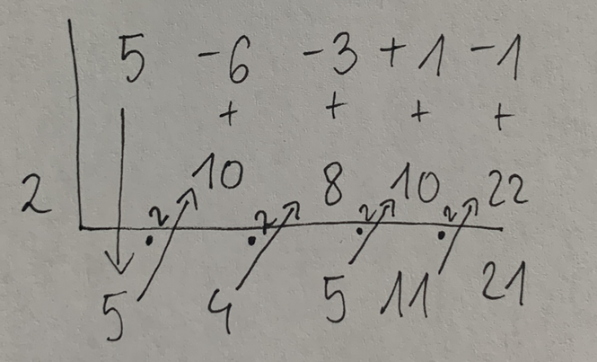 5 -6 -3 +1 -1
+ + + +
10 8 10 22
2
·2 ·2 ·2 ·2
5 4 5 11 21